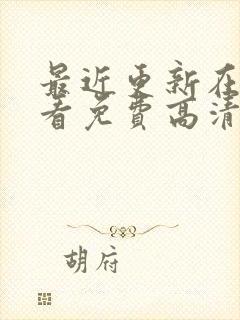 最近更新在
看免费高清
胡府